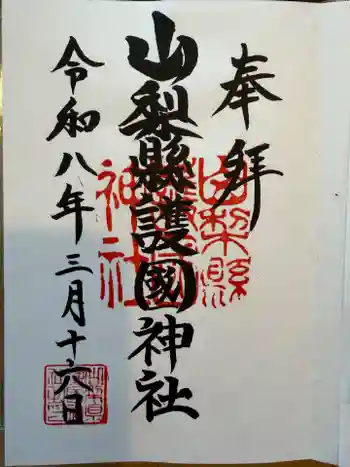 奉拝
山梨縣護國神社
令和八年三月十六日
山梨縣
神社